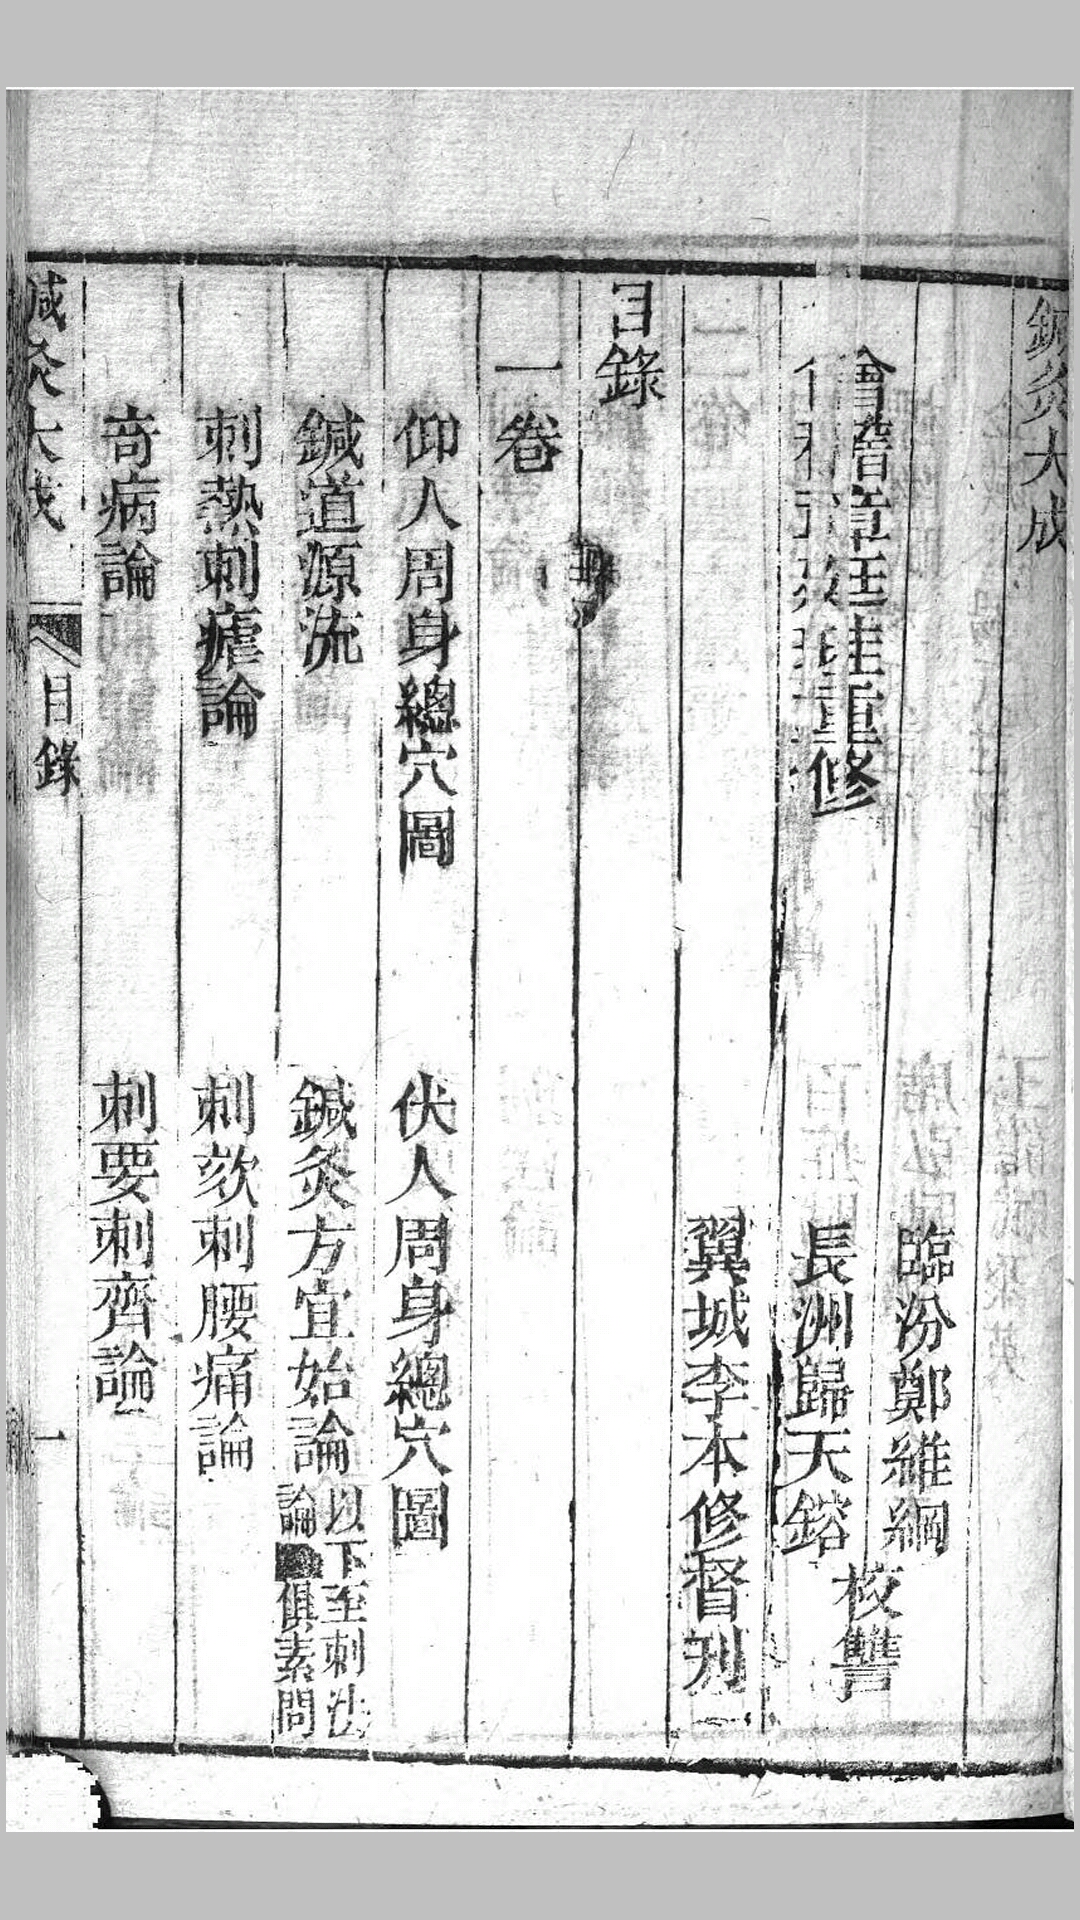 鍼灸大成
臨汾鄭維綱
會稽章廷珪重修
長洲歸天鎔
校讐
翼城李本修督刋
目錄
一卷
仰人周身總穴圖
伏人周身總穴圖
鍼道源流
鍼灸方宜始論
以下至刺法
論
俱素問
刺熱刺瘧論
刺欬刺腰痛論
奇病論
刺要刺齊論
鍼灸大成
目錄
一